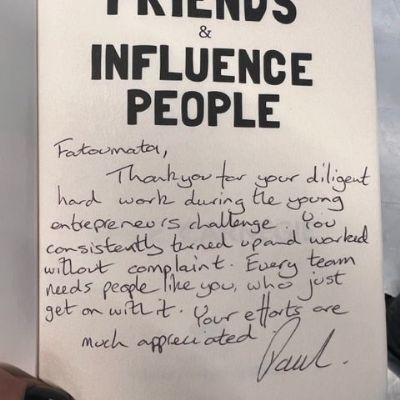 FRIENDS
&
INFLUENCE
PEOPLE
Fatoumata,
Thankyou for your diligent
hard work during the young
entrepreneurs challenge. You
consistently turned up and worked
without complaint. Every team
needs people like you, who just
get on with it. Your efforts are
much appreciated
Paul.